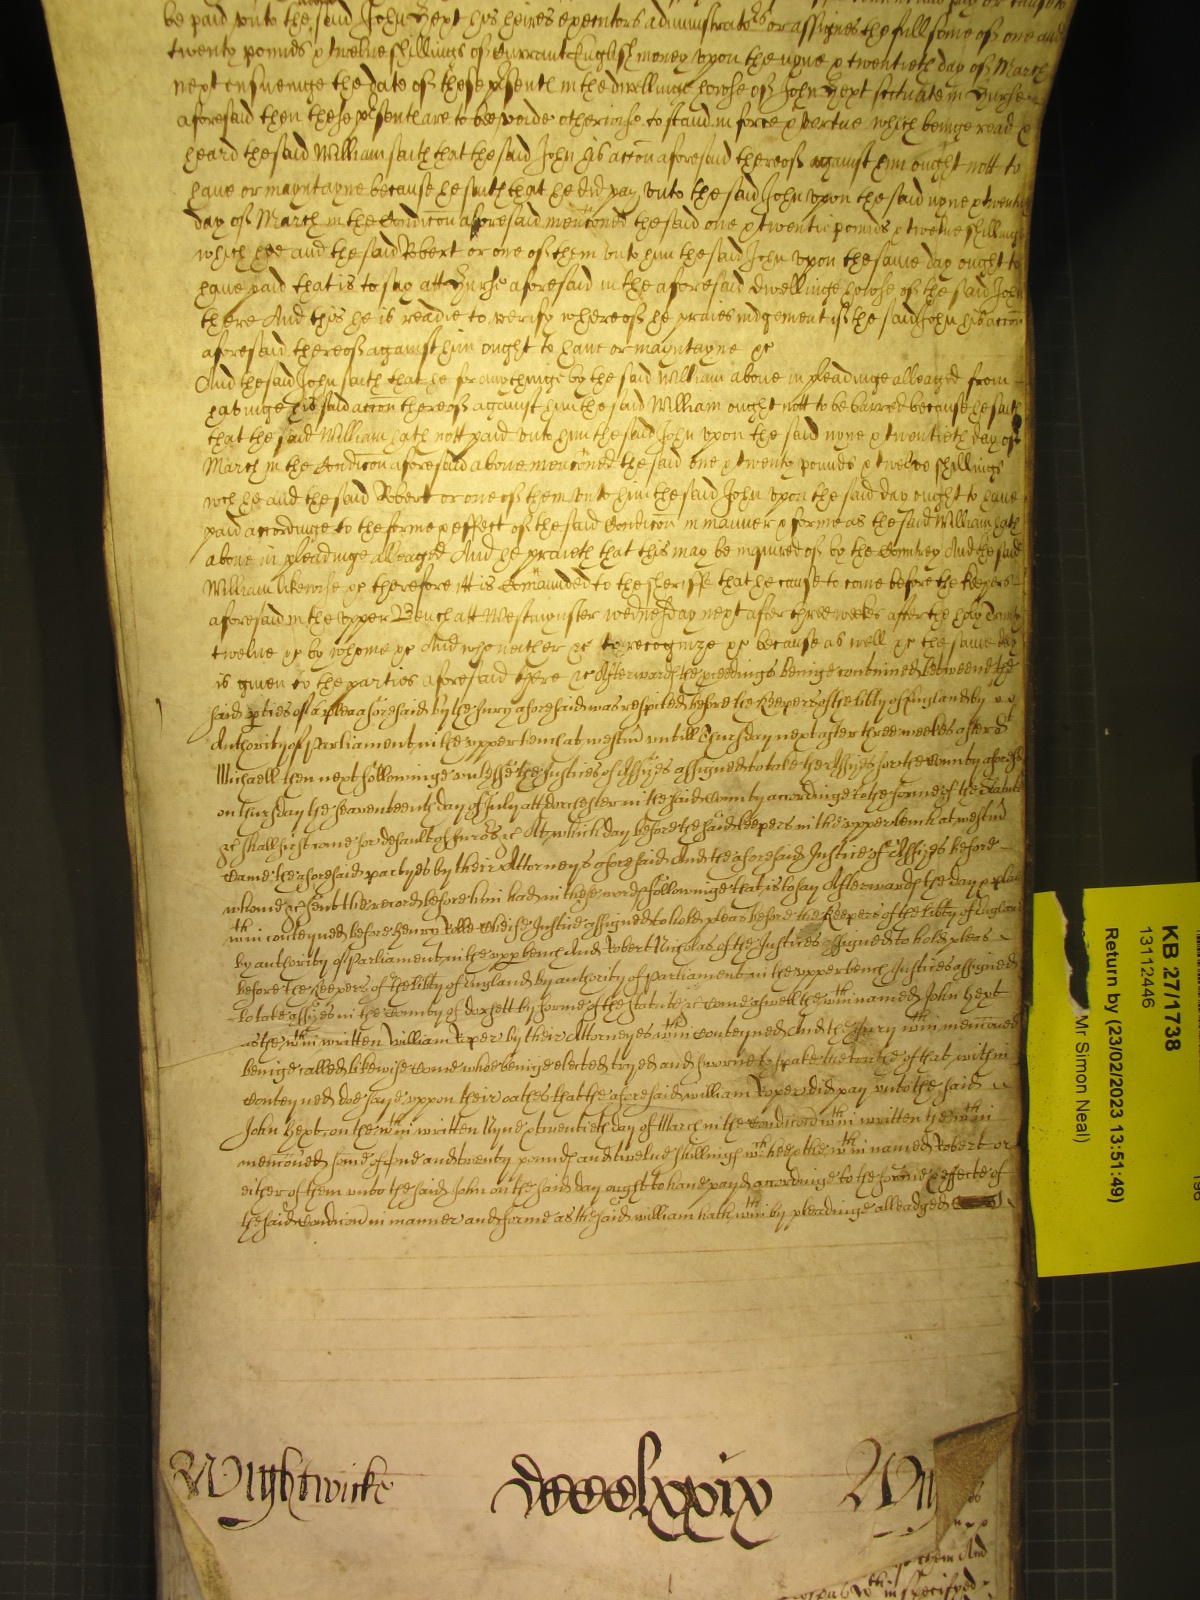 be paid unto the said John Hext his heires executors administrators or assignes the full some of one and
twenty pounds & twelve shillings of Currant English money upon the nyne & twentieth day of March
next ensueinge the date of these psents in the dwellinge howse of John Hext scituate in Hurse
aforesaid then these psents are to be voide otherwise to stand in force & vertue which beinge read &
heard the said William saith that the said John his accon aforesaid thereof against him ought nott to
have or mayntayne because he saith that he did pay unto the said John upon the said nyne & twentieth
day of March in the Condicon aforesaid menconed the said one & twentie pounds & twelve shillings
which hee and the said Robert or one of them unto him the said John upon the same day ought to
have paid that is to say att Hurse aforesaid in the aforesaid dwellinge howse of the said John
there And this he is readie to verify whereof he praies iudgement if the said John his accon
aforesaid thereof against him ought to have or mayntayne &c
And the said John saith that he for any thinge by the said William above in pleadinge alleaged from
havinge his said accon thereof against him the said William ought nott to be barred because he saith
that the said William hath nott paid unto him the said John upon the said nyne & twentieth day of
March in the Condicon aforesaid above menconed the said one & twenty pounds & twelve shillings
wch he and the said Robert or one of them unto him the said John upon the said day ought to have
paid accordinge to the forme & effect of the said Condicon in manner & forme as the said William hath
above in pleadinge alleaged And he praieth that this may be inquired of by the Countrey And the said
William likewise &c therefore itt is Comaunded to the sheriffe that he cause to come before the keepers
aforesaid in the upper Bench att Westminster wednesday next after three weekes after the holy Trinity
twelve &c by whome &c And who neither &c to recognize &c because as well &c the same day
is given to the parties aforesaid there &c Afterwards the pceedings beinge continued betweene the
said pties of the plea aforesaid by the Jury aforesaid was respited before the Keepers of the libty of England by
Authority of Parliament in the upper bench at westm untill Thursday next after three weekes after St
Michaell then next followinge unlesse the Justices of Assizes assigned to take the Assizes for the County aforesd
on Thursday the seaventeenth day of July att dorchester in the said County accordinge to the forme of the Statute
&c shall first come for default of Jurors &c At which day before the said keepers in the upper bench at westm
came the aforesaid partyes by their Attorneys aforesaid And the aforesaid Justices of Assizes before
whome &c sent their record before him had in these words followinge that is to say Afterwards the day & place
wthin conteyned before Henry Rolle Chiefe Justice assigned to hold pleas before the Keepers of the libty of England
by authority of Parliament in the upper bench And Robert Nicholas of the Justices assigned to hold pleas
before the Keepers of the libty of England by authority of Parliament in the upper bench Justices assigned
to take assizes in the County of dorsett by forme of the statute &c Come aswell the wthin named John Hext
as the wthin written William Roper by their Attorneyes wthin conteyned And the Jury wthin menconed
beinge called likewise come who beinge elected tryed and sworne to speake the truthe of that within
conteyned doe saye uppon their oathes that the aforesaid william Roper did pay unto the said
John Hext on the wthin written Nyne & twentieth day of March in the Condicon wthin written the wthin
menconed some of one and twenty pounds and twelve shillings wch hee & the wthin named Robert or
either of them unto the said John on the said day ought to have payd accordinge to the forme & effecte of
the said Condicon in manner and forme as the said william hath wthin by pleadinge alleadged
Wightwicke dccclxxix Wig
them And
wthin specifyed
KB 27/1738
13112446
Return by (23/02/2023 13:51:49)
Mr Simon Neal)